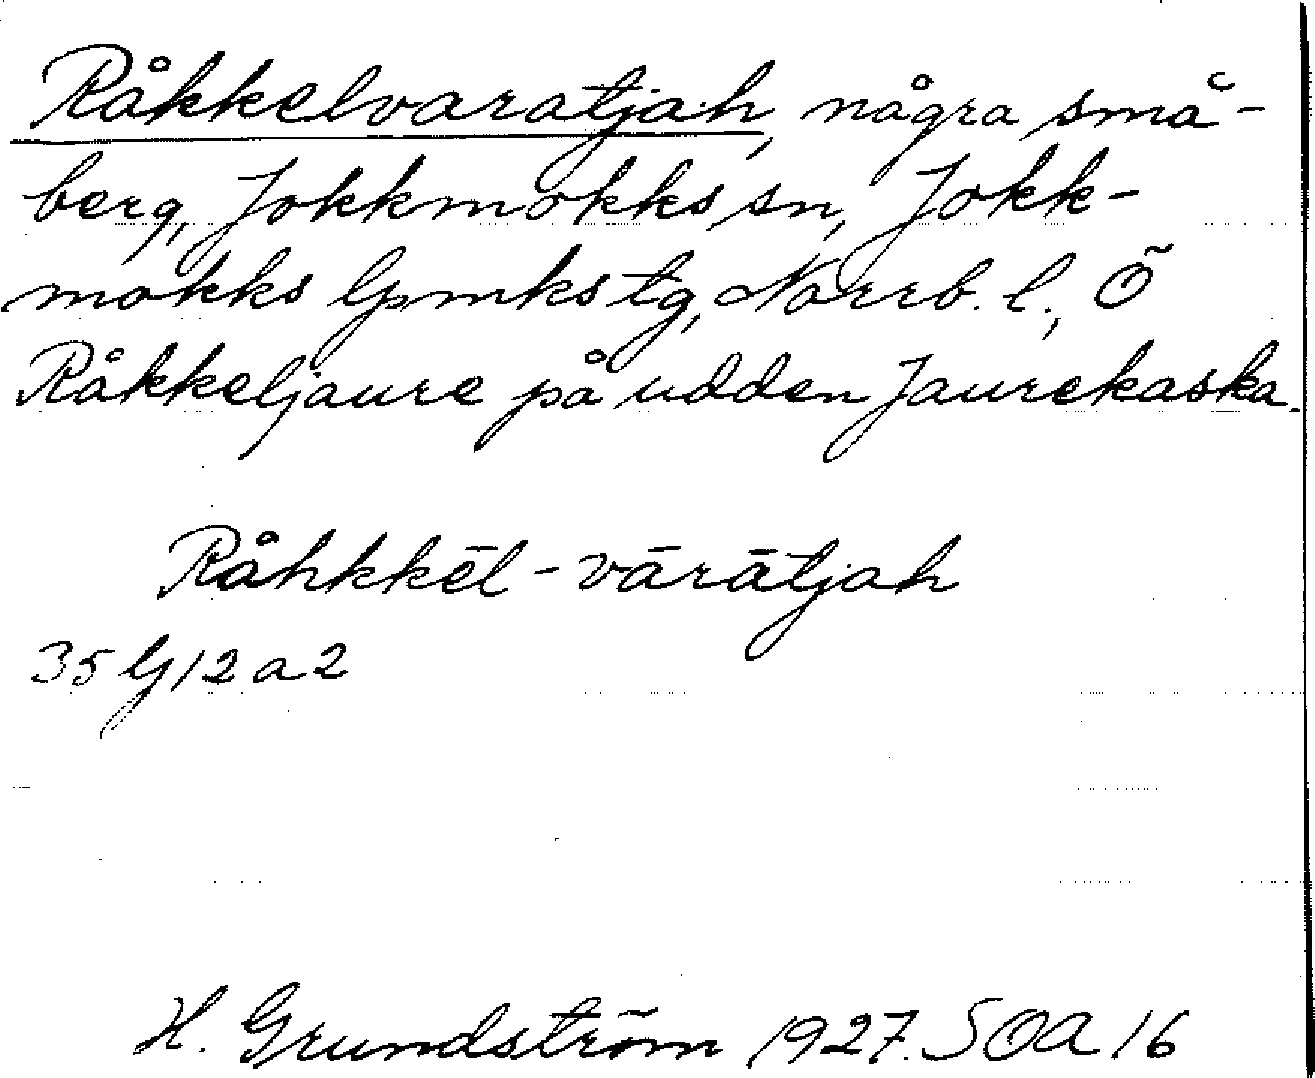 Råkkelvaratjah, några små-
berg, Jokkmokks sn, Jokk-
mokks lpmks tg, Norrb. l., Ö
Råkkeljaure på udden Jaurekaska.
Råhkkēl-vārātjah
35 G 12 a 2
H. Grundström 1927. SOA 16